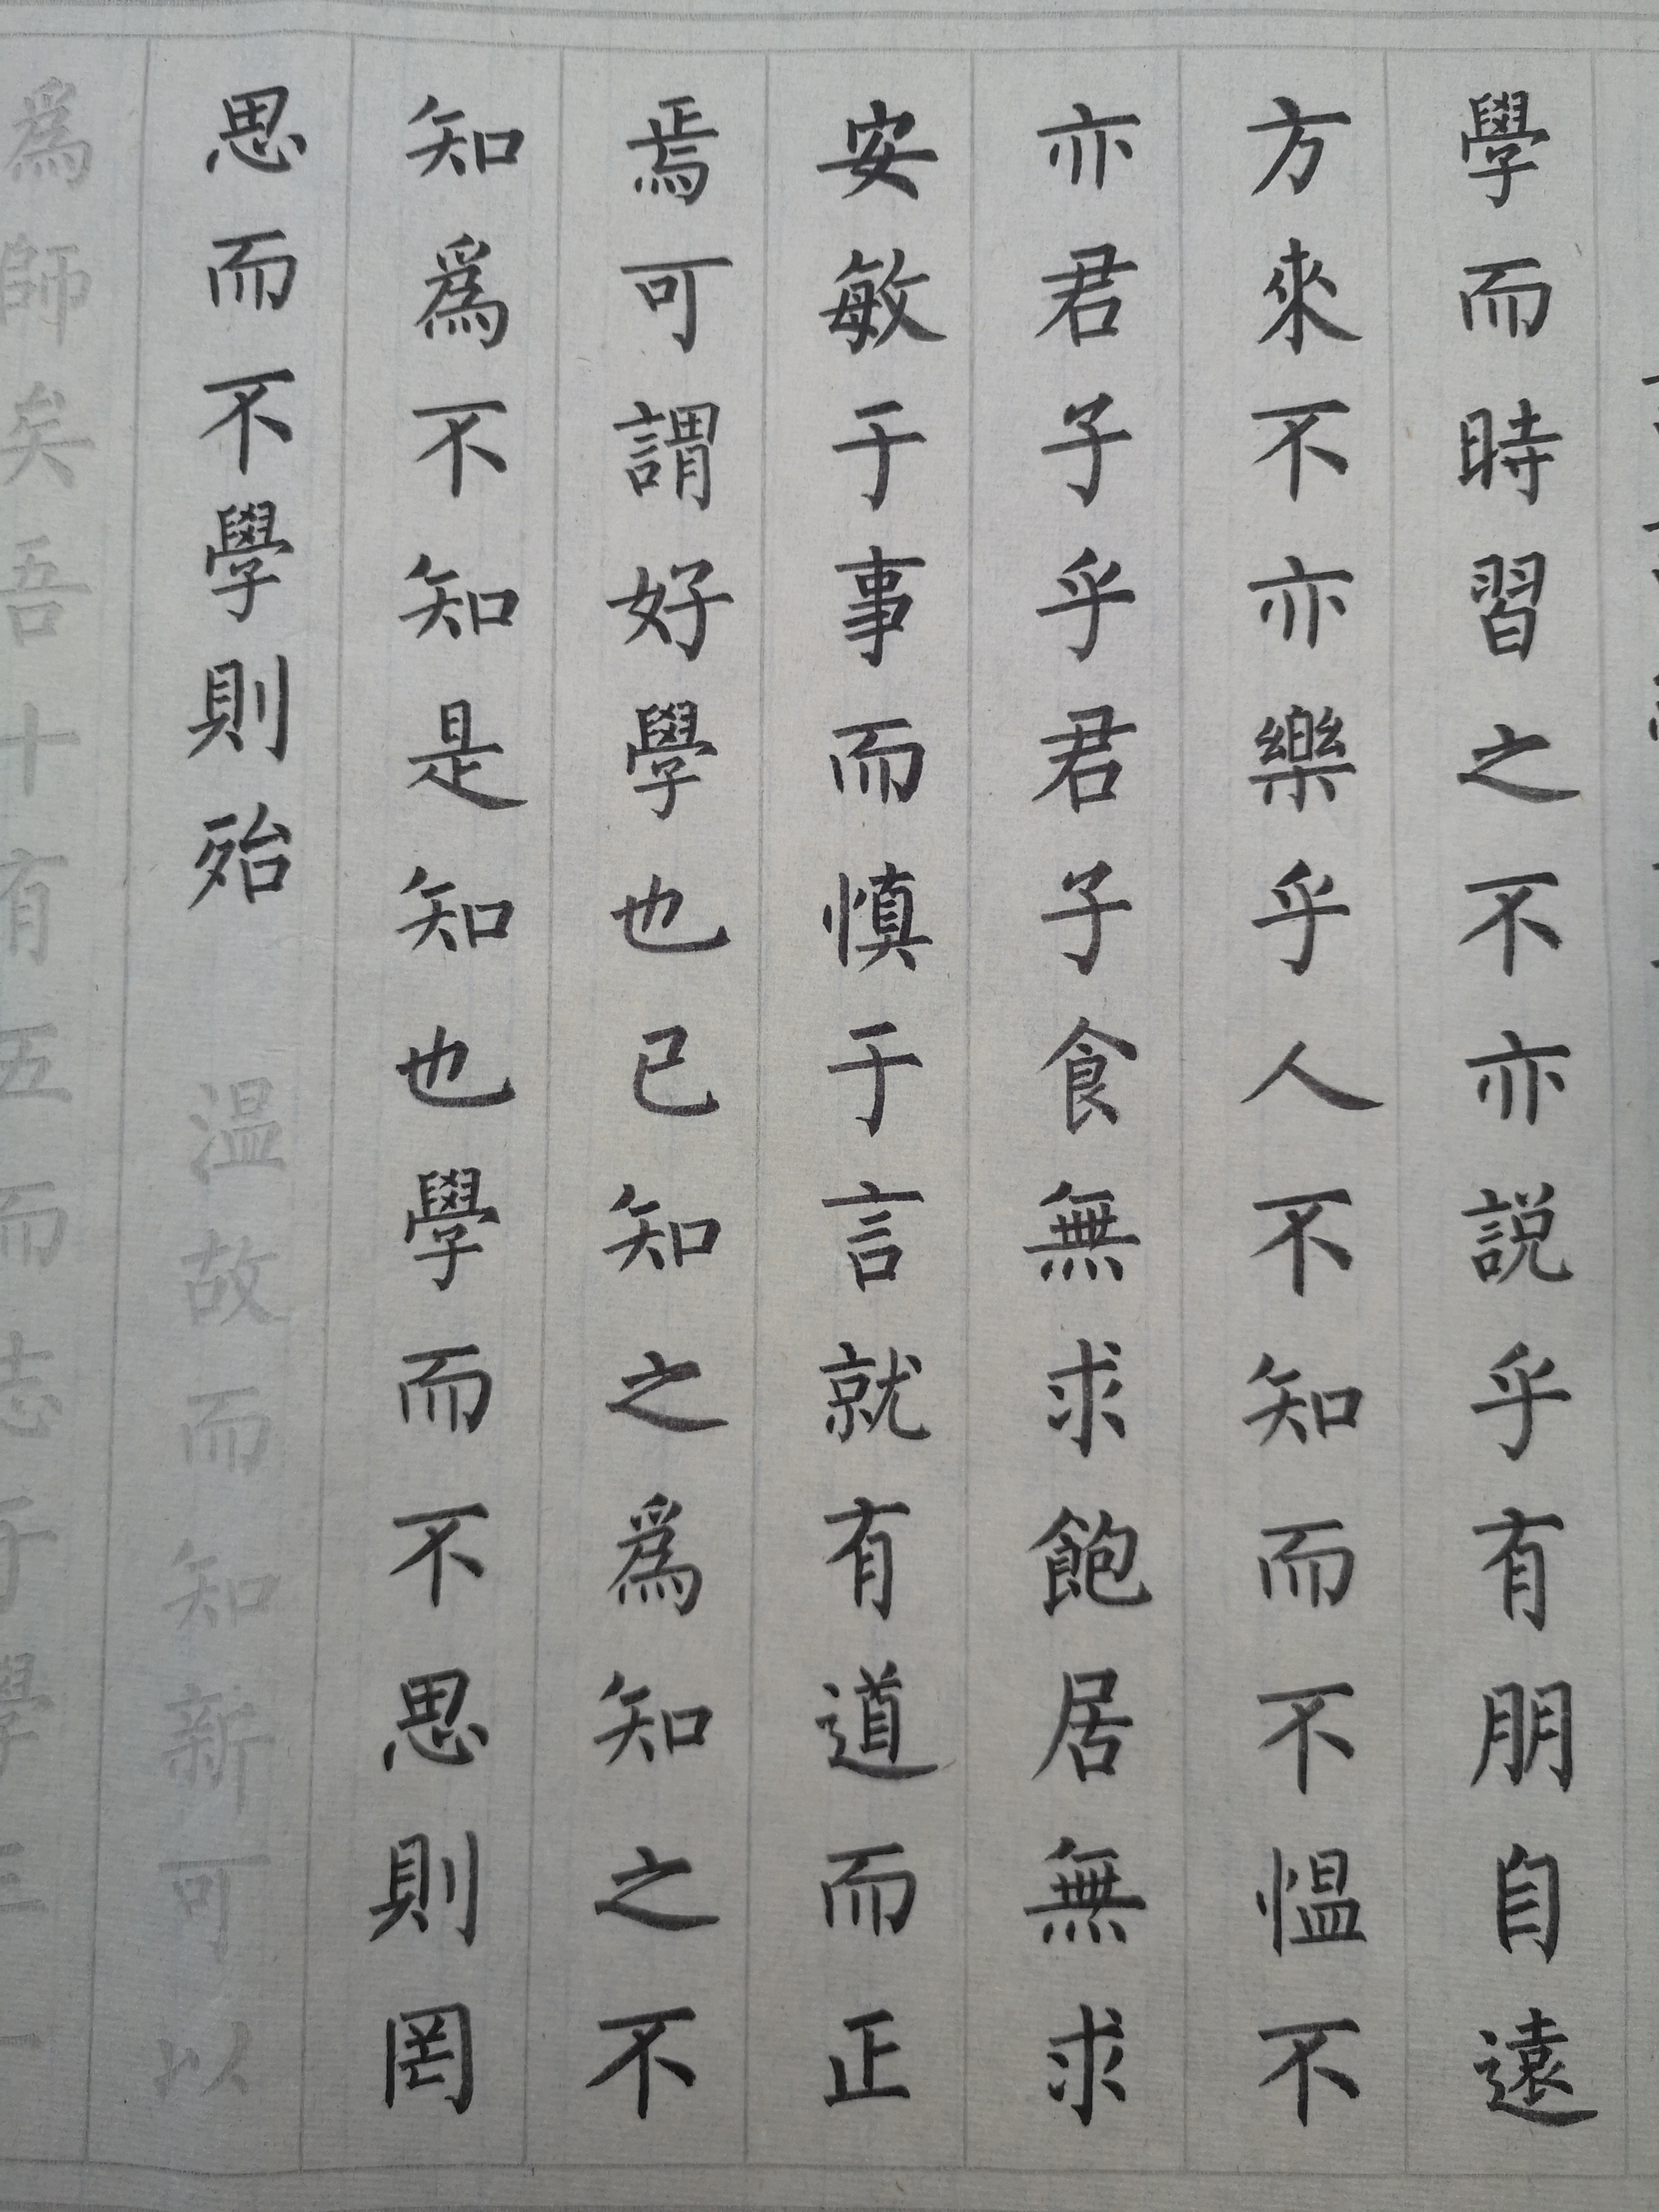 學而時習之不亦説乎有朋自遠
方來不亦樂乎人不知而不愠不
亦君子乎君子食無求飽居無求
安敏于事而慎于言就有道而正
焉可謂好學也已知之爲知之不
知爲不知是知也學而不思則罔
思而不學則殆温故而知新可以
爲師矣吾十有五而志于學三